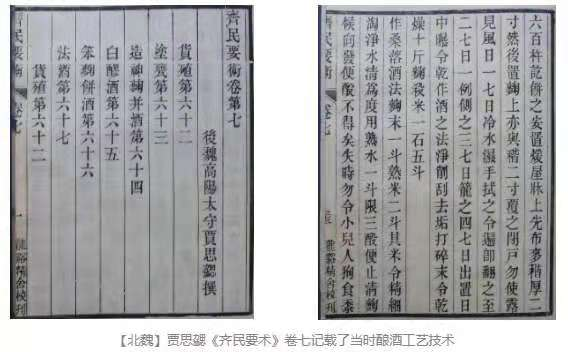 齊民要術卷第七
後魏高陽太守賈思勰撰
貨殖第六十二
塗甕第六十三
造神麴并酒第六十四
白醪酒第六十五
笨麴餅酒第六十六
法酒第六十七
貨殖第六十二
齊民要術
卷七
一
龍谿精舍校刊
六百杵訖餅之安置煖屋牀上先布麥䅌厚二
寸然後置麴上亦與䅌二寸覆之閉戶勿使露
見風日一七日冷水濕手拭之令遍卽翻之至
二七日一例側之三七日籠之四七日出置日
中曝令乾作酒之法淨削刮去垢打碎末令乾
燥十斤麴殺米一石五斗
作桑落酒法麴末一斗熟米二斗其米令精細
淘淨水清爲度用熟水一斗限三酘便止漬麴
候向發便酘不得矣失時勿令小兒人狗食黍
齊民要術
卷七
龍谿精舍校刊
【北魏】贾思勰《齐民要术》卷七记载了当时酿酒工艺技术